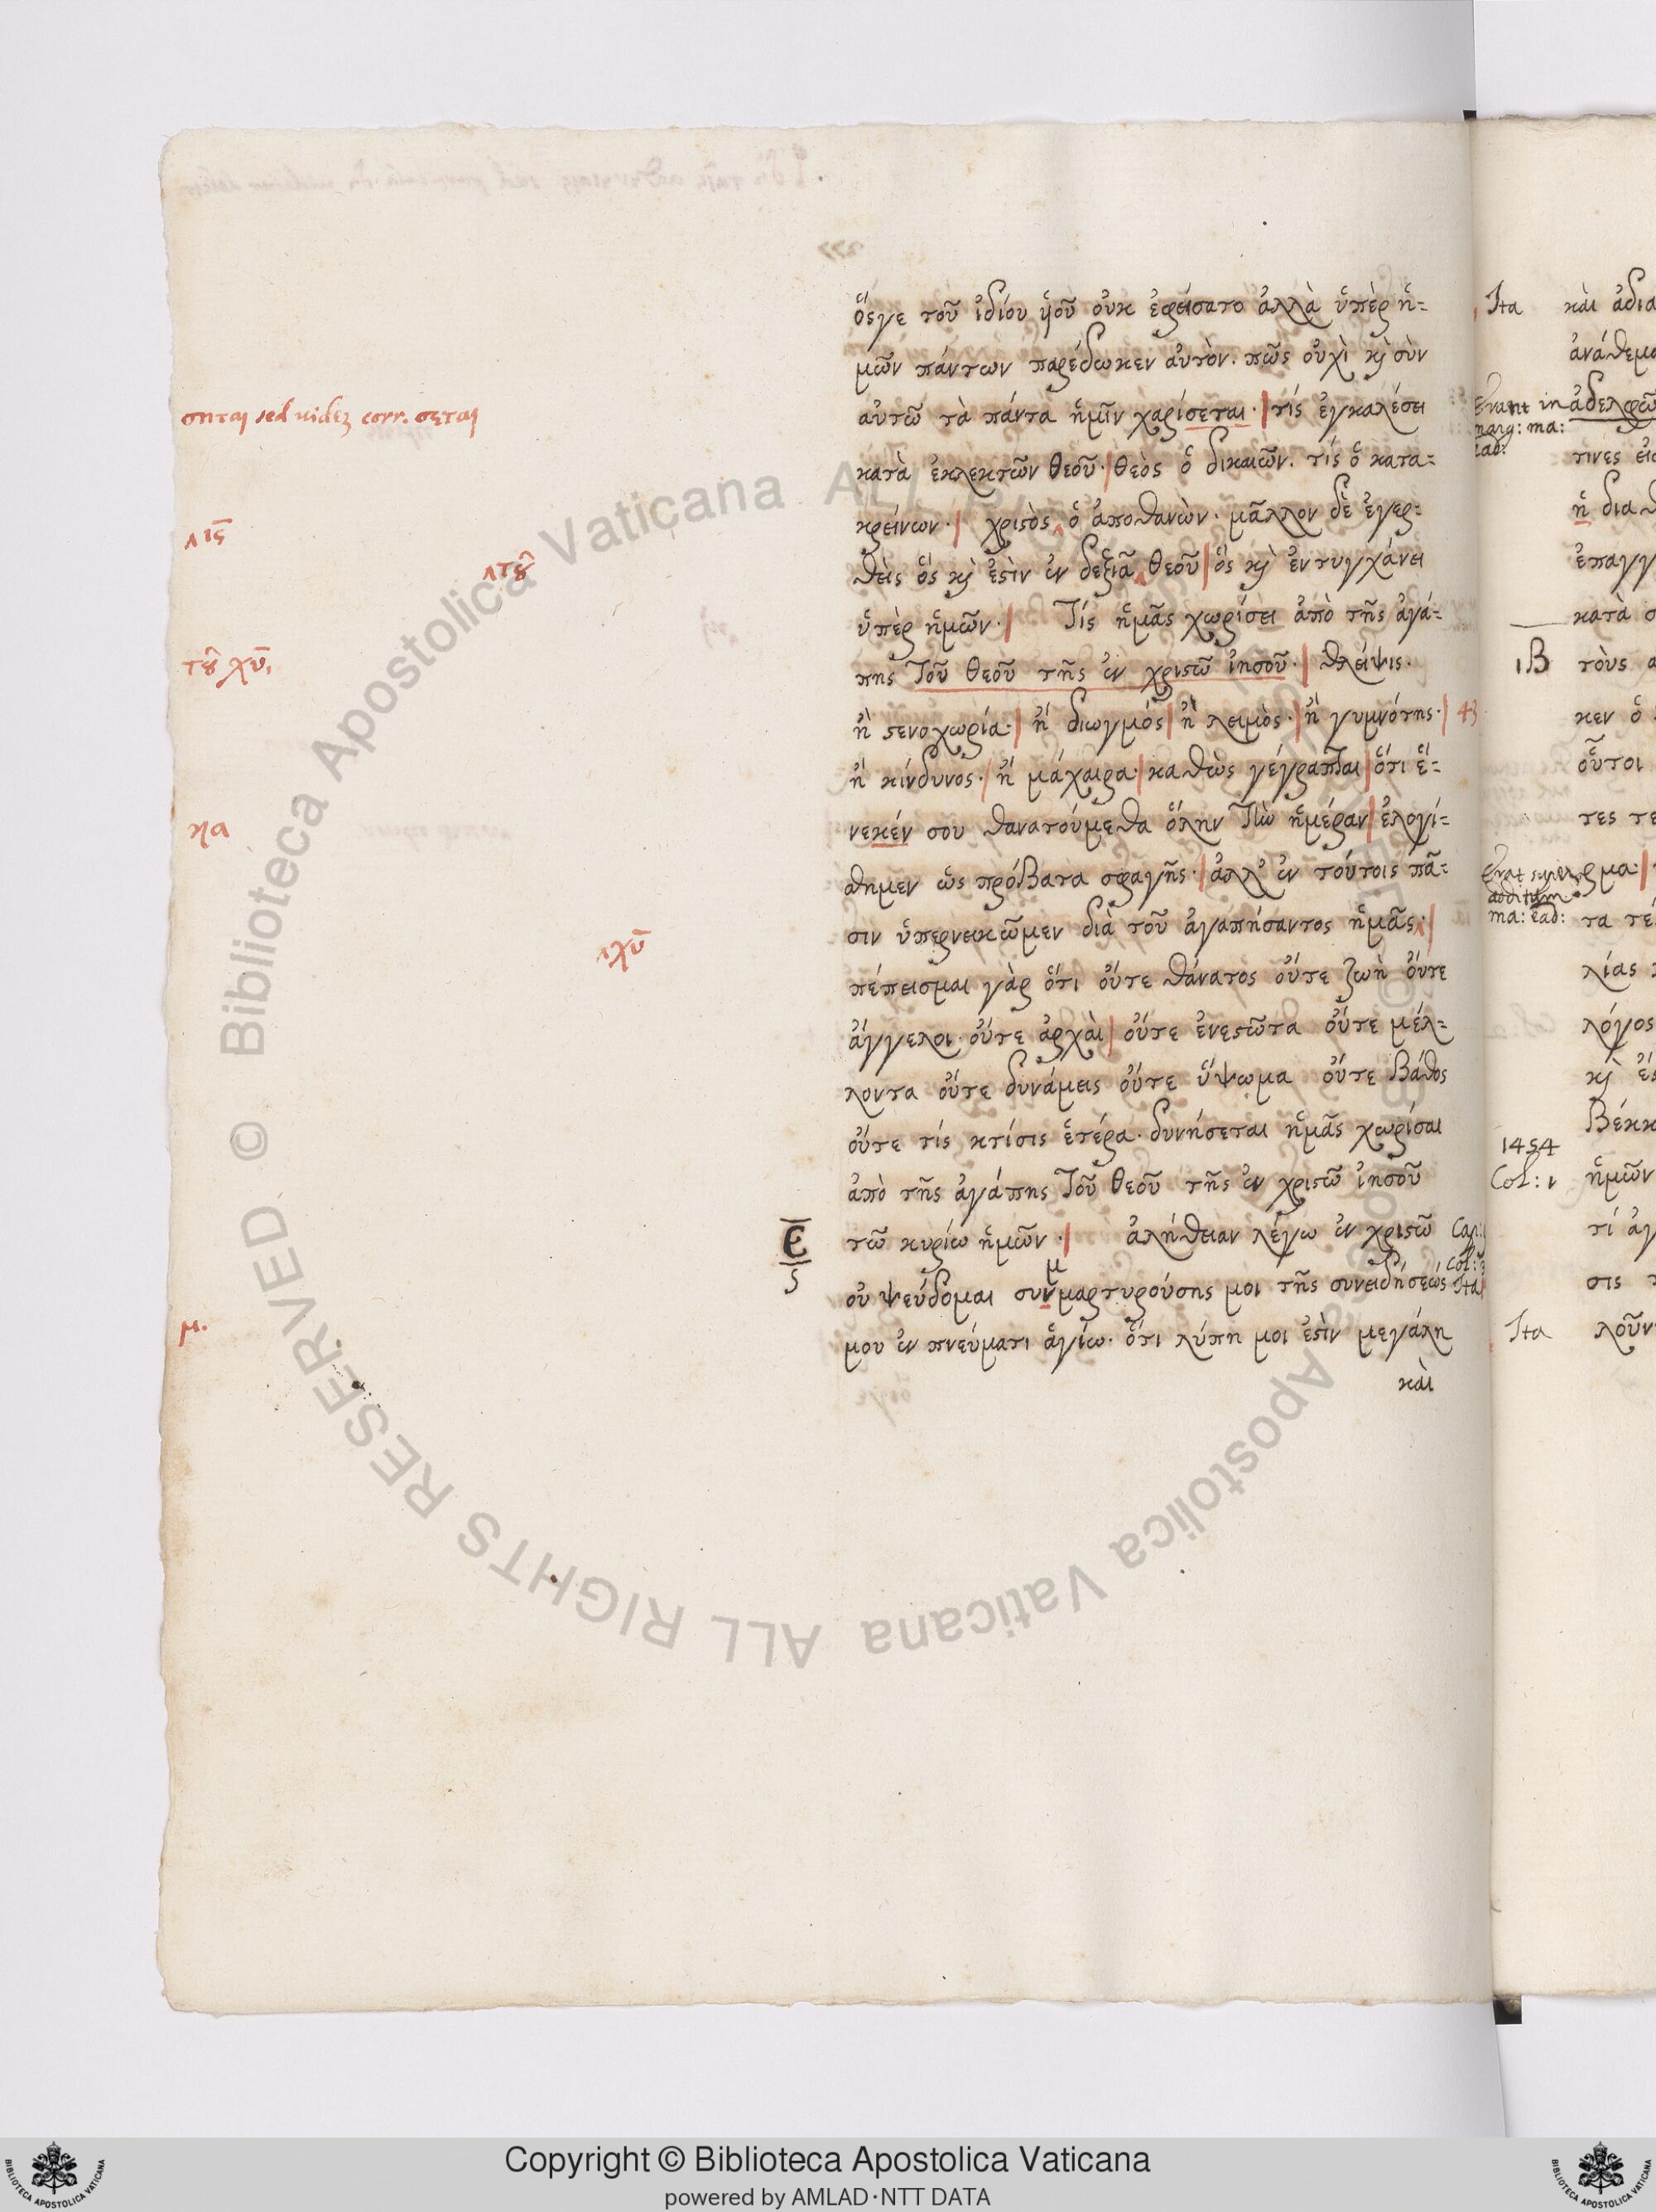 ὅςγε τοῦ ἰδίου ὑοῦ οὐκ ἐφείσατο ἀλλὰ ὑπὲρ ἡ=
μῶν πάντων παρέδωκεν αὐτὸν. πῶς οὐχὶ κὶ σὺν
σηται sed videz corr. σεται
αὐτῶ τὰ πάντα ἡμῖν χαρίσεται· | τίς ἐγκαλέσει
κατὰ ἐκλεκτῶν θεοῦ· | θεὸς ὁ δικαιῶν. τίς ὁ κατα=
κρείνων· | χριστὸς ὁ ἀποθανὼν· μᾶλλον δὲ ἐγερ=
θεὶς ὅς κὶ ἐστὶν ἐν δεξιᾶ θεοῦ | ὅς κὶ ἐντυγχάνει
ὑπὲρ ἡμῶν· | Τίς ἡμᾶς χωρίσει ἀπὸ τῆς ἀγά=
τȣ͂ χυ̅
πης τοῦ θεοῦ τῆς ἐν χριστῶ ἰησοῦ· | θλείψις·
ἢ στενοχωρία· | ἢ διωγμός | ἢ λειμὸς· | ἢ γυμνότης· | 43
ἢ κίνδυνος· | ἢ μάχαιρα· | καθὼς γέγραπται | ὅτι ἕ=
κα
νεκέν σου θανατούμεθα ὅλην τὴν ἡμέραν | ἐλογί=
θημεν ὡς πρόβατα σφαγῆς· | ἀλλ' ἐν τούτοις πᾶ=
σιν ὑπερνεικῶμεν διὰ τοῦ ἀγαπήσαντος ἡμᾶς· |
χυ̅
πέπεισμαι γὰρ ὅτι οὔτε θάνατος οὔτε ζωὴ οὔτε
ἄγγελοι· οὔτε ἀρχὰι | οὔτε ἐνεστῶτα οὔτε μέλ=
λοντα οὔτε δυνάμεις οὔτε ὕψωμα οὔτε βάθος
οὔτε τίς κτίσις ἑτέρα· δυνήσεται ἡμᾶς χωρίσαι
ἀπὸ τῆς ἀγάπης τοῦ θεοῦ τῆς ἐν χριστῶ ἰησοῦ
τῶ κυρίω ἡμῶν· | ἀλήθειαν λέγω ἐν χριστῶ
μ
οὐ ψεύδομαι συνμαρτυρούσης μοι τῆς συνειδήσεώς Ita
μ.
μου ἐν πνεύματι ἁγίω· ὅτι λύπη μοι ἐστὶν μεγάλη
και
Ita καὶ ἀδια
ἀνάθεμα
Erant in ἀδελφῶ
marg: ma:
ead:
τίνες εἰ
ἡ διαθ
ἐπαγγ
κατὰ σ
ιβ τοὺς
κεν ὁ
οὗτοι
τες τε
Erat super ρμα· |
additum
ma: ead: τα τέ
λίας
λόγος
κὶ ἐ
Βέκκ
1454
Col: 1 ἡμῶν
τί ἀγ
σις
Ita λοῦν
Copyright © Biblioteca Apostolica Vaticana
powered by AMLAD·NTT DATA
© Biblioteca Apostolica Vaticana ALL RIGHTS RESERVED